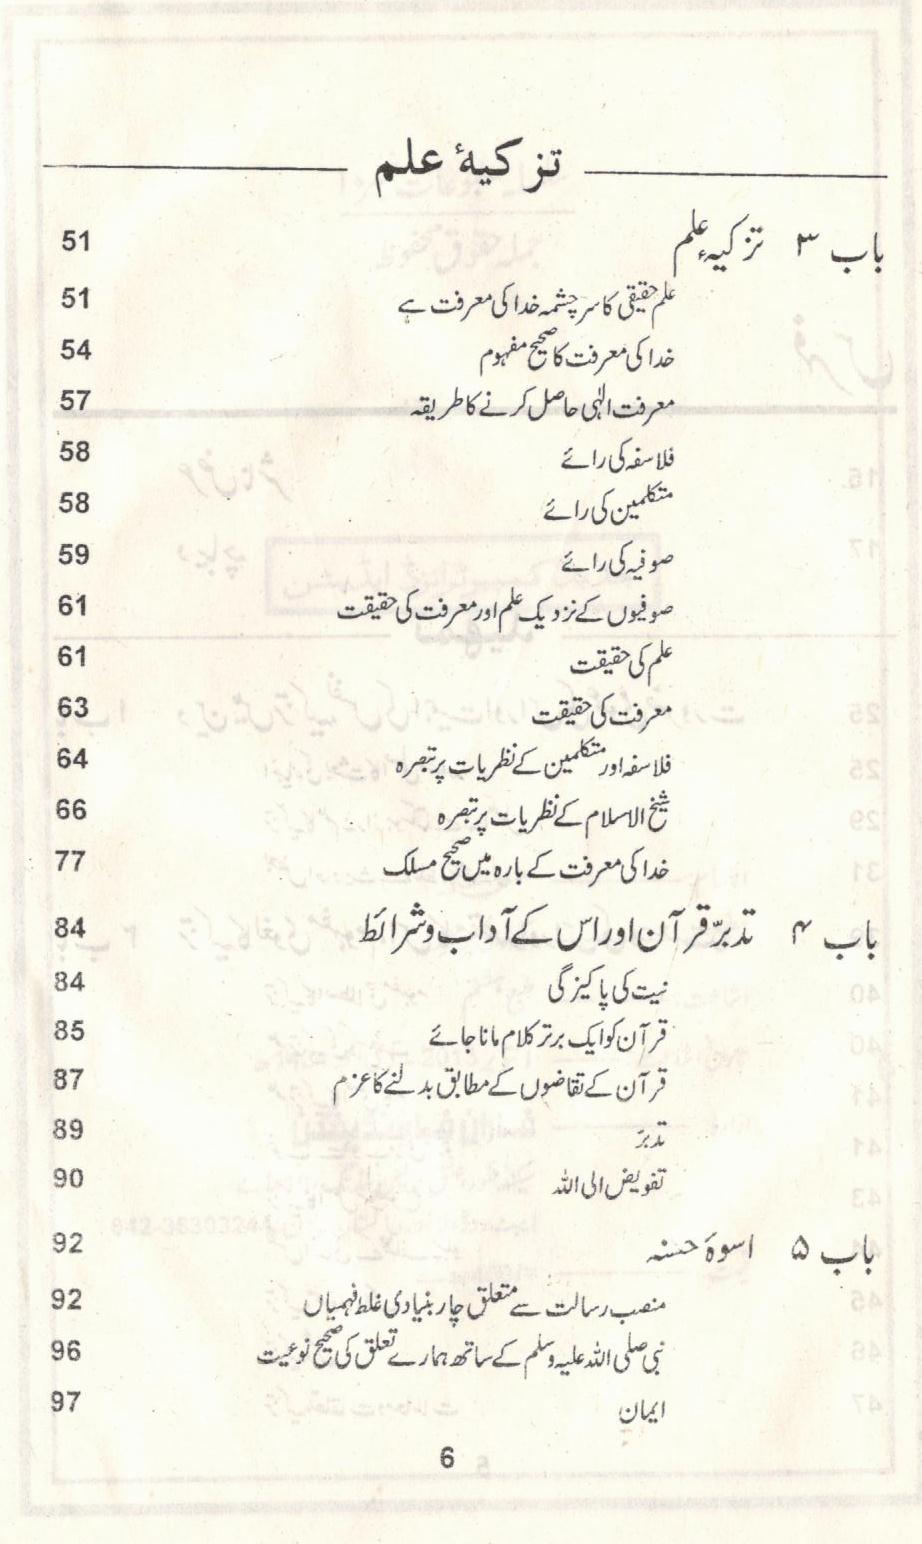 تزکیۂ علم
باب ۳ تزکیہء علم 51
علم حقیقی کا سرچشمہ خدا کی معرفت ہے 51
خدا کی معرفت کا صحیح مفہوم 54
معرفت الٰہی حاصل کرنے کا طریقہ 57
فلاسفہ کی رائے 58
متکلمین کی رائے 58
صوفیہ کی رائے 59
صوفیوں کے نزدیک علم اور معرفت کی حقیقت 61
علم کی حقیقت 61
معرفت کی حقیقت 63
فلاسفہ اور متکلمین کے نظریات پر تبصرہ 64
شیخ الاسلام کے نظریات پر تبصرہ 66
خدا کی معرفت کے بارہ میں صحیح مسلک 77
باب ۴ تدبّر قرآن اور اس کے آداب و شرائط 84
نیت کی پاکیزگی 84
قرآن کو ایک برتر کلام مانا جائے 85
قرآن کے تقاضوں کے مطابق بدلنے کا عزم 87
تدبّر 89
تفویض الی اللہ 90
باب ۵ اسوۂ حسنہ 92
منصب رسالت سے متعلق چار بنیادی غلط فہمیاں 92
نبی صلی اللہ علیہ وسلم کے ساتھ ہمارے تعلق کی صحیح نوعیت 96
ایمان 97
6